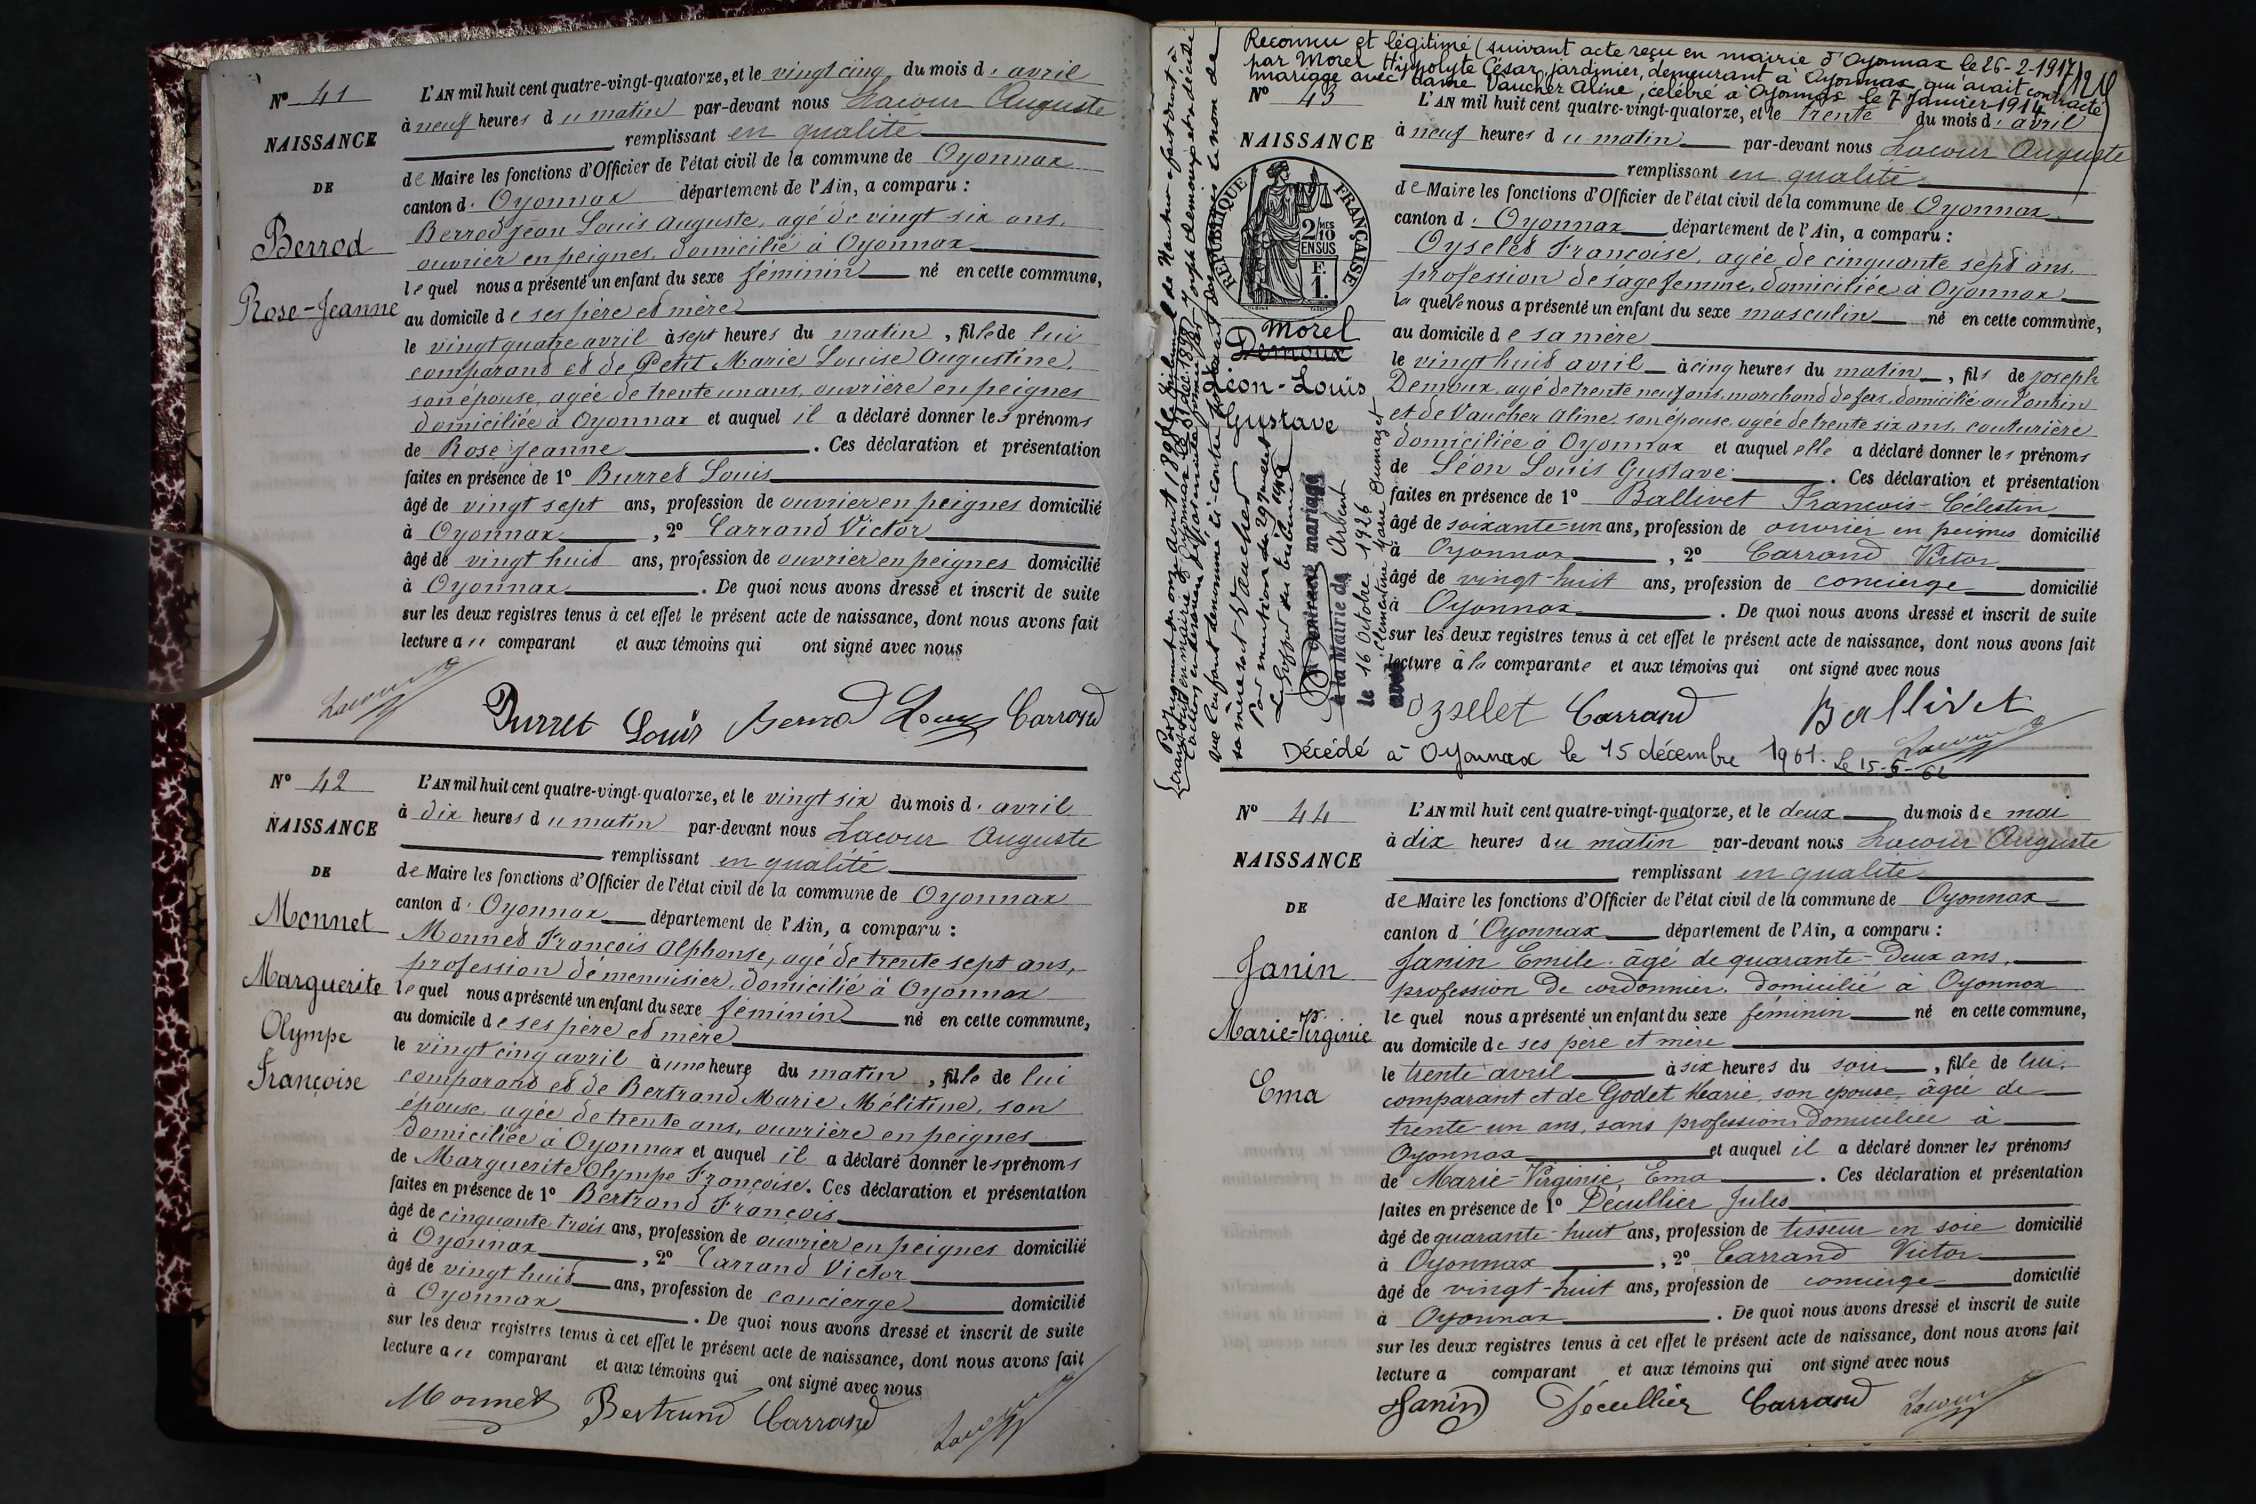 N° 41
NAISSANCE
DE
Berrod
Rose-Jeanne
L'AN mil huit cent quatre-vingt-quatorze, et le vingt cinq du mois d'avril
à neuf heures du matin par-devant nous Lacour Auguste
remplissant en qualité
de Maire les fonctions d'Officier de l'état civil de la commune de Oyonnax
canton d'Oyonnax département de l'Ain, a comparu :
Berrod Jean Louis Auguste, agé de vingt six ans,
ouvrier en peignes, domicilié à Oyonnax
lequel nous a présenté un enfant du sexe féminin né en cette commune,
au domicile de ses père et mère
le vingt quatre avril à sept heures du matin, fille de lui
comparant et de Petit Marie Louise Augustine,
son épouse, agée de trente un ans, ouvrière en peignes
domiciliée à Oyonnax et auquel il a déclaré donner les prénoms
de Rose Jeanne. Ces déclaration et présentation
faites en présence de 1° Burret Louis
âgé de vingt sept ans, profession de ouvrier en peignes domicilié
à Oyonnax, 2° Carrand Victor
âgé de vingt huit ans, profession de ouvrier en peignes domicilié
à Oyonnax. De quoi nous avons dressé et inscrit de suite
sur les deux registres tenus à cet effet le présent acte de naissance, dont nous avons fait
lecture au comparant et aux témoins qui ont signé avec nous
Lacour Burret Louis Berrod Louis Carrand
N° 42
NAISSANCE
DE
Monnet
Marguerite
Olympe
Françoise
L'AN mil huit cent quatre-vingt-quatorze, et le vingt six du mois d'avril
à dix heures du matin par-devant nous Lacour Auguste
remplissant en qualité
de Maire les fonctions d'Officier de l'état civil de la commune de Oyonnax
canton d'Oyonnax département de l'Ain, a comparu :
Monnet François Alphonse, agé de trente sept ans,
profession de menuisier, domicilié à Oyonnax
lequel nous a présenté un enfant du sexe féminin né en cette commune,
au domicile de ses père et mère
le vingt cinq avril à une heure du matin, fille de lui
comparant et de Bertrand Marie Mélitine, son
épouse, agée de trente ans, ouvrière en peignes
domiciliée à Oyonnax et auquel il a déclaré donner les prénoms
de Marguerite Olympe Françoise. Ces déclaration et présentation
faites en présence de 1° Bertrand François
âgé de cinquante trois ans, profession de ouvrier en peignes domicilié
à Oyonnax, 2° Carrand Victor
âgé de vingt huit ans, profession de concierge domicilié
à Oyonnax. De quoi nous avons dressé et inscrit de suite
sur les deux registres tenus à cet effet le présent acte de naissance, dont nous avons fait
lecture au comparant et aux témoins qui ont signé avec nous
Monnet Bertrand Carrand Lacour
Reconnu et légitimé (suivant acte reçu en mairie d'Oyonnax le 26-2-1917
par Morel Hippolyte César, jardinier, demeurant à Oyonnax qui avait contracté
mariage avec dame Vaucher Aline, célébré à Oyonnax le 7 Janvier 1914)
N° 43
NAISSANCE
RÉPUBLIQUE FRANÇAISE
2/10 MES
EN SUS
F.
1.
Morel
Demoux
Léon-Louis
Gustave
Par jugement du onze août 1898
que l'enfant dénommé ci-contre
sa mère soit Vaucher
Par mention du 29 juillet
Le Greffier du tribunal
A contracté mariage
à la Mairie de Arbent
le 16 Octobre 1926
avec Clémentine Marie Gumazet
L'AN mil huit cent quatre-vingt-quatorze, et le trente du mois d'avril
à neuf heures du matin par-devant nous Lacour Auguste
remplissant en qualité
de Maire les fonctions d'Officier de l'état civil de la commune de Oyonnax
canton d'Oyonnax département de l'Ain, a comparu :
Oyselet Françoise, agée de cinquante sept ans,
profession de sage femme, domiciliée à Oyonnax
laquelle nous a présenté un enfant du sexe masculin né en cette commune,
au domicile de sa mère
le vingt huit avril à cinq heures du matin, fils de Joseph
Demoux, agé de trente neuf ans, marchand de fers, domicilié au Tonkin
et de Vaucher Aline, son épouse, agée de trente six ans, couturière
domiciliée à Oyonnax et auquel elle a déclaré donner les prénoms
de Léon Louis Gustave. Ces déclaration et présentation
faites en présence de 1° Ballivet François-Célestin
âgé de soixante-un ans, profession de ouvrier en peignes domicilié
à Oyonnax, 2° Carrand Victor
âgé de vingt-huit ans, profession de concierge domicilié
à Oyonnax. De quoi nous avons dressé et inscrit de suite
sur les deux registres tenus à cet effet le présent acte de naissance, dont nous avons fait
lecture à la comparante et aux témoins qui ont signé avec nous
Ozselet Carrand Ballivet
Lacour
Décédé à Oyonnax le 15 décembre 1961. Le 15-5-62
N° 44
NAISSANCE
DE
Janin
Marie-Virginie
Ema
L'AN mil huit cent quatre-vingt-quatorze, et le deux du mois de mai
à dix heures du matin par-devant nous Lacour Auguste
remplissant en qualité
de Maire les fonctions d'Officier de l'état civil de la commune de Oyonnax
canton d'Oyonnax département de l'Ain, a comparu :
Janin Emile, âgé de quarante-deux ans,
profession de cordonnier, domicilié à Oyonnax
lequel nous a présenté un enfant du sexe féminin né en cette commune,
au domicile de ses père et mère
le trente avril à six heures du soir, fille de lui,
comparant et de Godet Marie, son épouse, âgée de
trente-un ans, sans profession, domiciliée à
Oyonnax et auquel il a déclaré donner les prénoms
de Marie-Virginie, Ema. Ces déclaration et présentation
faites en présence de 1° Decullier Jules
âgé de quarante-huit ans, profession de tisseur en soie domicilié
à Oyonnax, 2° Carrand Victor
âgé de vingt-huit ans, profession de concierge domicilié
à Oyonnax. De quoi nous avons dressé et inscrit de suite
sur les deux registres tenus à cet effet le présent acte de naissance, dont nous avons fait
lecture a comparant et aux témoins qui ont signé avec nous
Janin Décullier Carrand Lacour